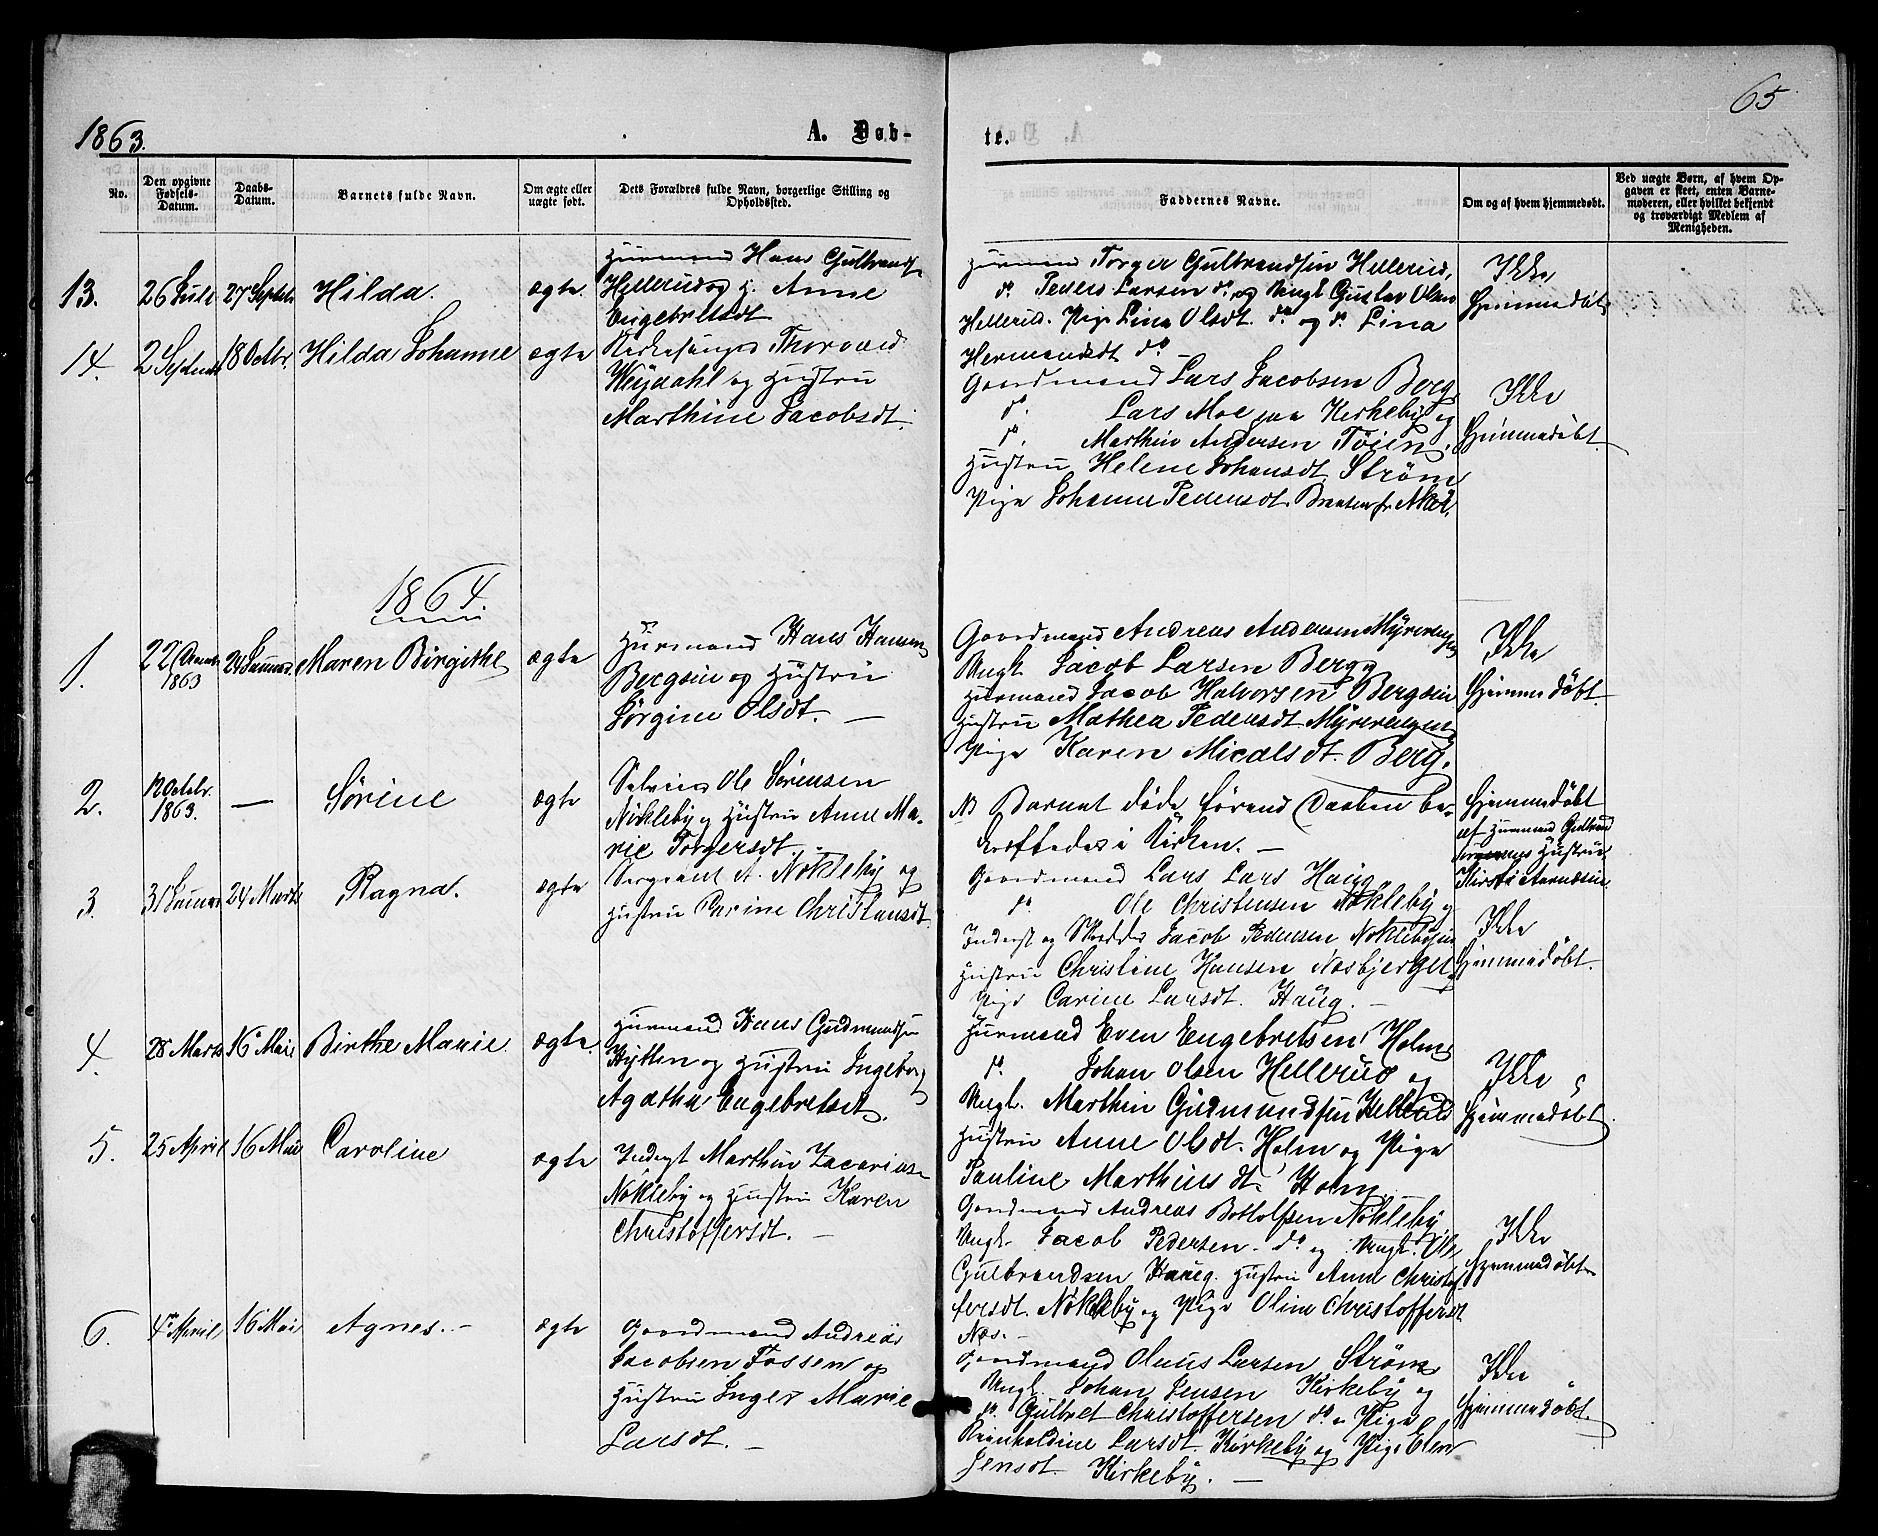 65
1863.
A. Døb-
te.
No.
Den opgivne Fødsels-Datum.
Daabs-Datum.
Barnets fulde Navn.
Om ægte eller uægte født.
Dets Forældres fulde Navn, borgerlige Stilling og Opholdssted.
Faddernes Navne.
Om og af hvem hjemmedøbt.
Ved uægte Børn, af hvem Op-
gaven er skeet, enten Barne-
moderen, eller hvilket bekjendt
og troværdigt Medlem af
Menigheden.
13.
26 Juli
27 Septbr
Hilda.
ægte.
Huusmand Hans Gulbrands.
Hellerud og H. Anne
Engebretsdt
Huusmand Torger Gulbrandsen Hellerud,
do. Peders Larsen do. og Ungk. Gustav Olsen
Hellerud. Pige Lina Olsdt. do. og do. Lina
Hermansdt do.
Ikke
Hjemmedøbt
14.
2 Septembr
18 Octbr.
Hilda Johanne
ægte
Kirkesanger Thorvald
Weydahl og Hustru
Marthine Jacobsdt.
Gaardmand Lars Jacobsen Berg
do. Lars Moe paa Kirkeby og
do. Marthin Andersen Tøien.
Hustru Helene Johansdt. Strøm
Pige Johanne Pedersdt.
Ikke
Hjemmedøbt.
1864.
1.
22 Decembr
1863
24 Januar.
Maren Birgithe
ægte
Huusmand Hans Hansen
Bergsein og Hustru
Sørgine Olsdt. —
Gaardmand Andreas Andersen Myrerengen
Ungk. Jacob Larsen Berg
Huusmand Jacob Halvorsen Bergsein
Hustru Mathea Pedersdt Myrerengen
Pige Karen Micalsdt. Berg.
Ikke
Hjemmedøbt.
2.
12 Octobr.
1863.
—
Sørine
ægte
Selveier Ole Sørensen
Nøkleby og Hustru Anne Ma-
rie Torgersdt.
NB Barnet døde førend Daaben be-
kræftedes i Kirken. —
Hjemmedøbt
af Huusmand Gulbrand
Hustru
Kirsti
3.
31 Januar
24 Marts
Ragna.
ægte
Sergeant A. Nøkleby og
Hustru Carine Christiansdt.
Gaardmand Lars Lars Haug
do. Ole Christensen Nøkleby og
Inderst og Skrædder Jacob Pedersen Nøklebysein
Hustru Christine Hansen Næsbjerget
Pige Carine Larsdt. Haug. —
Ikke
Hjemmedøbt.
4.
28 Marts
16 Mai
Birthe Marie.
ægte.
Huusmand Hans Gudmundsen
Hytten og Hustru Ingeborg
Agathe Engebretsdt.
Huusmand Even Engebretsen Holm
do. Johan Olsen Hellerud og
Ungk. Marthin Gudmundsen Hellerud
Hustru Anne Olsdt. Holm og Pige
Pauline Marthinsdt. Holm
Ikke
Hjemmedøbt.
5.
25 April
16 Mai
Caroline
ægte
Inderst Marthin Zacarias.
Nøkleby og Hustru Karen
Christoffersdt. —
Gaardmand Andreas Botholfsen Nøkleby
Ungk. Jacob Pedersen. do. og Ungk. Ole
Gulbrandsen Haug. Hustru Anne Christof-
fersdt. Nøkleby og Pige Oline Christoffersdt
Næs. —
Ikke
Hjemmedøbt.
6.
4 April
16 Mai
Agnes. —
ægte
Gaardmand Andreas
Jacobsen Fossen og
Hustru Inger Marie
Larsdt. —
Gaardmand Olaus Larsen Strøm
Ungk. Johan Jensen Kirkeby og
do. Gulbret Christoffersen do. Pige
Reinholdine Larsdt. Kirkeby og Pige Elen
Jensdt. Kirkeby. —
Ikke
Hjemmedøbt.